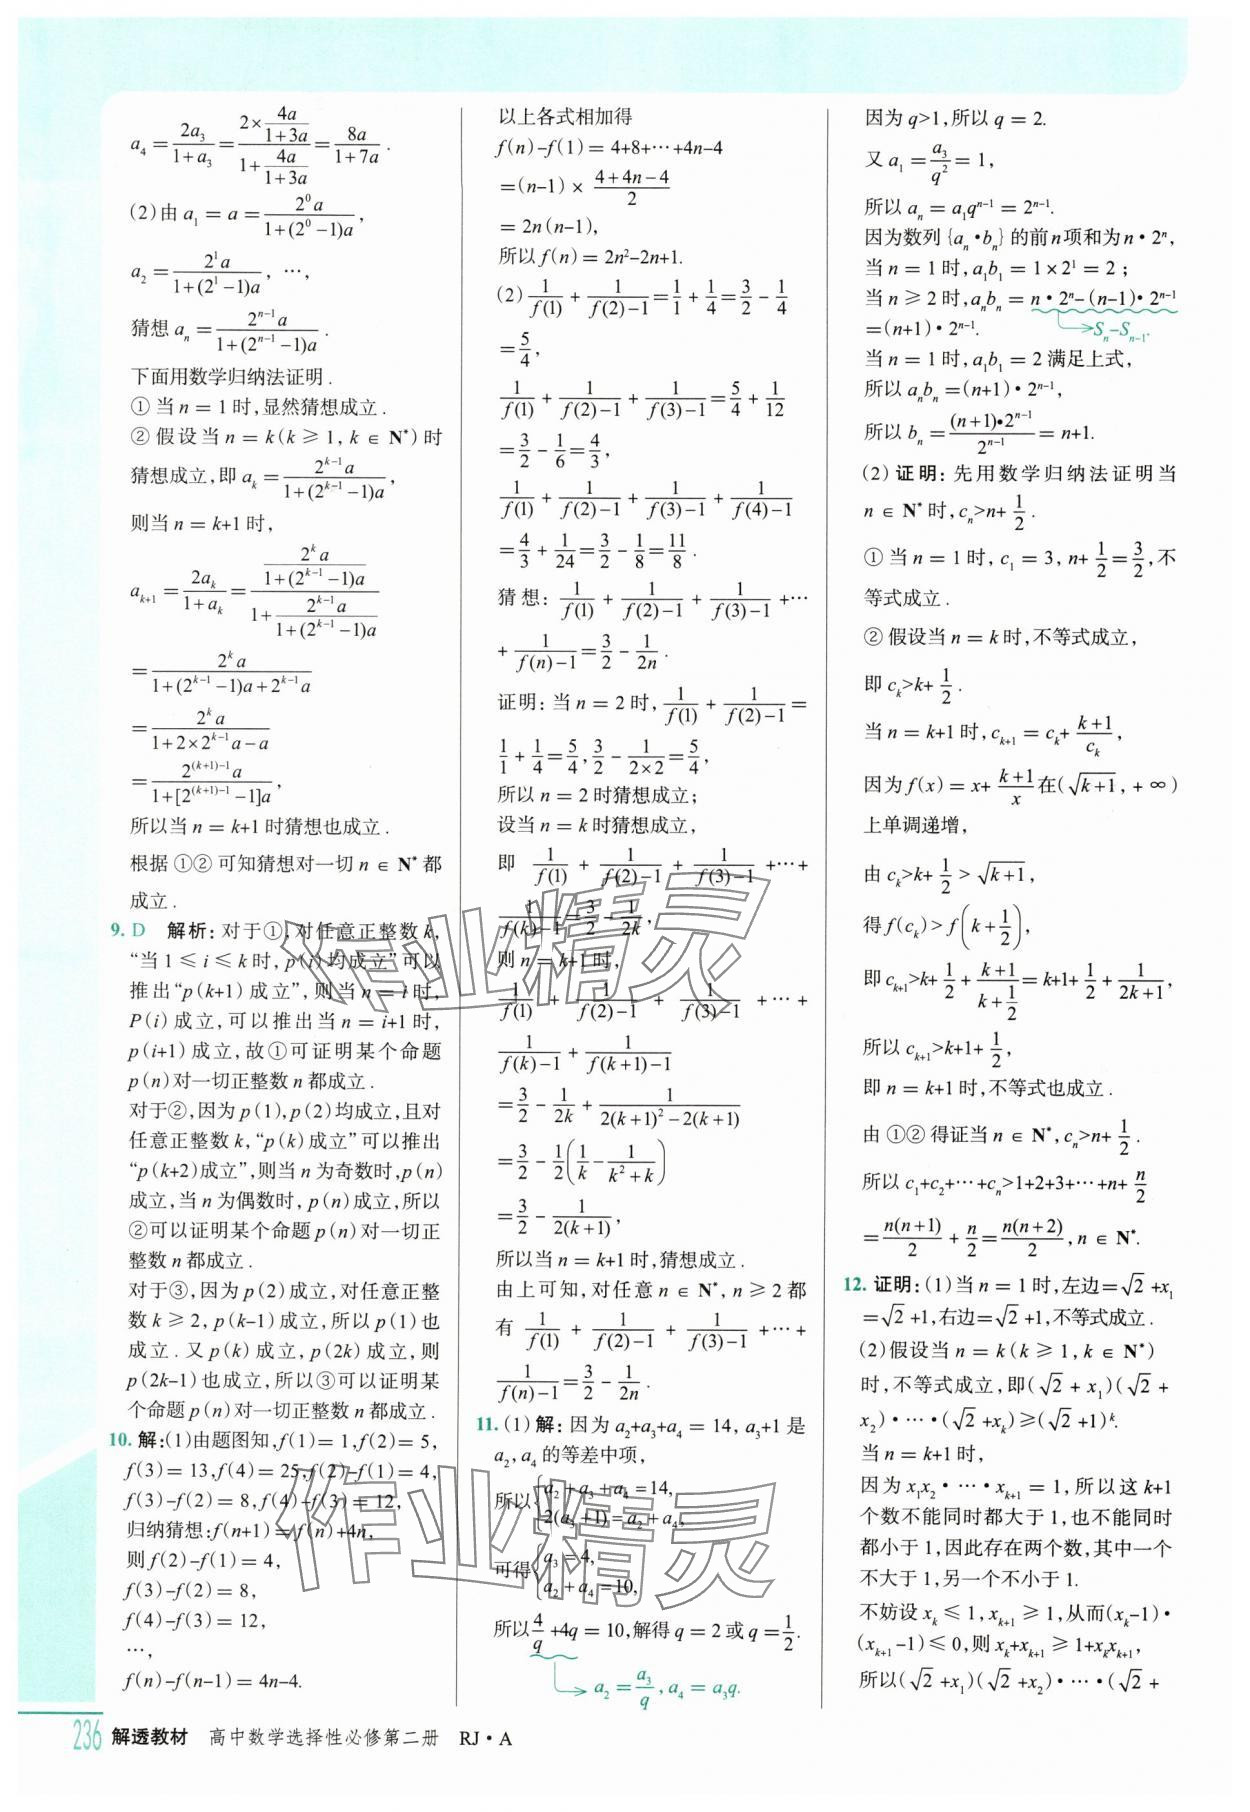 a₄ = 2a₃/(1+a₃) = (2×4a/(1+3a))/(1+4a/(1+3a)) = 8a/(1+7a) .
(2)由 a₁ = a = 2⁰a/(1+(2⁰-1)a),
a₂ = 2¹a/(1+(2¹-1)a), …,
猜想 aₙ = 2ⁿ⁻¹a/(1+(2ⁿ⁻¹-1)a) .
下面用数学归纳法证明 .
① 当 n = 1 时,显然猜想成立 .
② 假设当 n = k(k ≥ 1, k ∈ N*)时
猜想成立,即 aₖ = 2ᵏ⁻¹a/(1+(2ᵏ⁻¹-1)a),
则当 n = k+1 时,
aₖ₊₁ = 2aₖ/(1+aₖ) = (2ᵏa/(1+(2ᵏ⁻¹-1)a))/(1+2ᵏ⁻¹a/(1+(2ᵏ⁻¹-1)a))
= 2ᵏa/(1+(2ᵏ⁻¹-1)a+2ᵏ⁻¹a)
= 2ᵏa/(1+2×2ᵏ⁻¹a-a)
= 2⁽ᵏ⁺¹⁾⁻¹a/(1+[2⁽ᵏ⁺¹⁾⁻¹-1]a),
所以当 n = k+1 时猜想也成立 .
根据 ①② 可知猜想对一切 n ∈ N* 都
成立 .
9. D 解析: 对于①,对任意正整数 k,
“当 1 ≤ i ≤ k 时, p(i)均成立”可以
推出“p(k+1)成立”,则当 n = i 时,
P(i)成立,可以推出当 n = i+1 时,
p(i+1)成立,故①可证明某个命题
p(n)对一切正整数 n 都成立 .
对于②,因为 p(1), p(2)均成立,且对
任意正整数 k,“p(k)成立”可以推出
“p(k+2)成立”,则当 n 为奇数时, p(n)
成立,当 n 为偶数时, p(n)成立,所以
②可以证明某个命题 p(n)对一切正
整数 n 都成立 .
对于③,因为 p(2)成立,对任意正整
数 k ≥ 2, p(k-1)成立,所以 p(1)也
成立 . 又 p(k)成立, p(2k)成立,则
p(2k-1)也成立,所以③可以证明某
个命题 p(n)对一切正整数 n 都成立 .
10. 解:(1)由题图知,f(1) = 1,f(2) = 5,
f(3) = 13,f(4) = 25,f(2)-f(1) = 4,
f(3)-f(2) = 8,f(4)-f(3) = 12,
归纳猜想:f(n+1) = f(n)+4n,
则 f(2)-f(1) = 4,
f(3)-f(2) = 8,
f(4)-f(3) = 12,
…,
f(n)-f(n-1) = 4n-4.
以上各式相加得
f(n)-f(1) = 4+8+…+4n-4
=(n-1) × (4+4n-4)/2
= 2n(n-1),
所以 f(n) = 2n²-2n+1.
(2) 1/f(1) + 1/(f(2)-1) = 1/1 + 1/4 = 3/2 - 1/4
= 5/4,
1/f(1) + 1/(f(2)-1) + 1/(f(3)-1) = 5/4 + 1/12
= 3/2 - 1/6 = 4/3,
1/f(1) + 1/(f(2)-1) + 1/(f(3)-1) + 1/(f(4)-1)
= 4/3 + 1/24 = 3/2 - 1/8 = 11/8 .
猜想: 1/f(1) + 1/(f(2)-1) + 1/(f(3)-1) +…
+ 1/(f(n)-1) = 3/2 - 1/2n .
证明: 当 n = 2 时, 1/f(1) + 1/(f(2)-1) =
1/1 + 1/4 = 5/4, 3/2 - 1/(2×2) = 5/4,
所以 n = 2 时猜想成立;
设当 n = k 时猜想成立,
即 1/f(1) + 1/(f(2)-1) + 1/(f(3)-1) +…+
1/(f(k)-1) = 3/2 - 1/2k,
则 n = k+1 时,
1/f(1) + 1/(f(2)-1) + 1/(f(3)-1) +…+
1/(f(k)-1) + 1/(f(k+1)-1)
= 3/2 - 1/2k + 1/(2(k+1)²-2(k+1))
= 3/2 - 1/2(1/k - 1/(k²+k))
= 3/2 - 1/(2(k+1)),
所以当 n = k+1 时,猜想成立 .
由上可知,对任意 n ∈ N*, n ≥ 2 都
有 1/f(1) + 1/(f(2)-1) + 1/(f(3)-1) +…+
1/(f(n)-1) = 3/2 - 1/2n.
11. (1) 解: 因为 a₂+a₃+a₄ = 14, a₃+1 是
a₂, a₄ 的等差中项,
所以{a₂+a₃+a₄ = 14,
2(a₃+1) = a₂+a₄,
可得{a₃ = 4,
a₂+a₄ = 10,
所以 4/q +4q = 10,解得 q = 2 或 q = 1/2.
a₂ = a₃/q, a₄ = a₃q.
因为 q>1,所以 q = 2.
又 a₁ = a₃/q² = 1,
所以 aₙ = a₁qⁿ⁻¹ = 2ⁿ⁻¹.
因为数列{aₙ•bₙ}的前 n 项和为 n•2ⁿ,
当 n = 1 时, a₁b₁ = 1×2¹ = 2;
当 n ≥ 2 时, aₙbₙ = n•2ⁿ-(n-1)•2ⁿ⁻¹
=(n+1)•2ⁿ⁻¹.
Sₙ-Sₙ₋₁.
当 n = 1 时, a₁b₁ = 2 满足上式,
所以 aₙbₙ =(n+1)•2ⁿ⁻¹,
所以 bₙ = (n+1)•2ⁿ⁻¹/2ⁿ⁻¹ = n+1.
(2) 证明: 先用数学归纳法证明当
n ∈ N* 时, cₙ>n+ 1/2 .
① 当 n = 1 时, c₁ = 3, n+ 1/2 = 3/2,不
等式成立 .
② 假设当 n = k 时,不等式成立,
即 cₖ>k+ 1/2 .
当 n = k+1 时, cₖ₊₁ = cₖ+ (k+1)/cₖ,
因为 f(x) = x+ (k+1)/x 在(√(k+1), +∞)
上单调递增,
由 cₖ>k+ 1/2 > √(k+1),
得 f(cₖ)>f(k+ 1/2),
即 cₖ₊₁>k+ 1/2 + (k+1)/(k+1/2) = k+1+ 1/2 + 1/(2k+1),
所以 cₖ₊₁>k+1+ 1/2,
即 n = k+1 时,不等式也成立 .
由 ①② 得证当 n ∈ N*, cₙ>n+ 1/2 .
所以 c₁+c₂+…+cₙ>1+2+3+…+n+ n/2
= n(n+1)/2 + n/2 = n(n+2)/2, n ∈ N*.
12. 证明:(1)当 n = 1 时,左边=√2 +x₁
=√2 +1,右边=√2 +1,不等式成立 .
(2)假设当 n = k(k ≥ 1, k ∈ N*)
时,不等式成立,即(√2 + x₁)(√2 +
x₂)•…•(√2 +xₖ)≥(√2 +1)ᵏ.
当 n = k+1 时,
因为 x₁x₂•…•xₖ₊₁ = 1,所以这 k+1
个数不能同时都大于 1,也不能同时
都小于 1,因此存在两个数,其中一个
不大于 1,另一个不小于 1.
不妨设 xₖ ≤ 1, xₖ₊₁ ≥ 1,从而(xₖ-1)•
(xₖ₊₁-1)≤0,则 xₖ+xₖ₊₁ ≥ 1+xₖxₖ₊₁,
所以(√2 +x₁)(√2 +x₂)•…•(√2 +
作业精灵
作业精灵
236 解透教材 高中数学选择性必修第二册 RJ•A